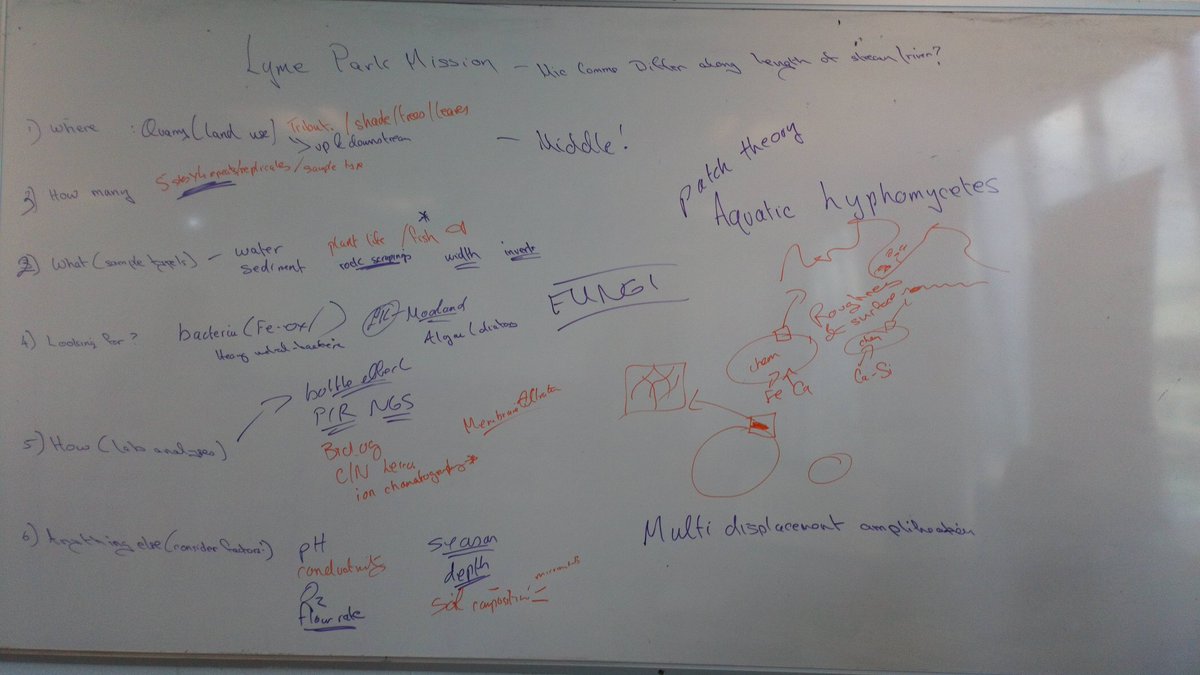 Lyme Park Mission - Mic Comms Differ along length of stream/river?
1) Where : Quarry (land use) Tribut. / shade/trees/leaves
up & downstream
- Middle!
3) How many 5 sites/4 repeats/replicates/sample type
2) What (sample targets) - water
sediment
plant life / fish *
rock scrapings width inverts
4) Looking for? bacteria (Fe-ox/ )
Heavy metal-bacteria
Moorland
Algae/diatoms
FUNGI
5) How (lab analyses)
bottle effect
PCR NGS
Biolog
C/N Leica
ion chromatography *
Membrane filtration
6) Anything else (consider factors?)
pH
conductivity
O2
flow rate
season
depth
Soil composition = minerals
patch theory
Aquatic hyphomycetes
Roughness
of surface
chem
Fe Ca
chem
Ca-Si
Multi displacement amplification